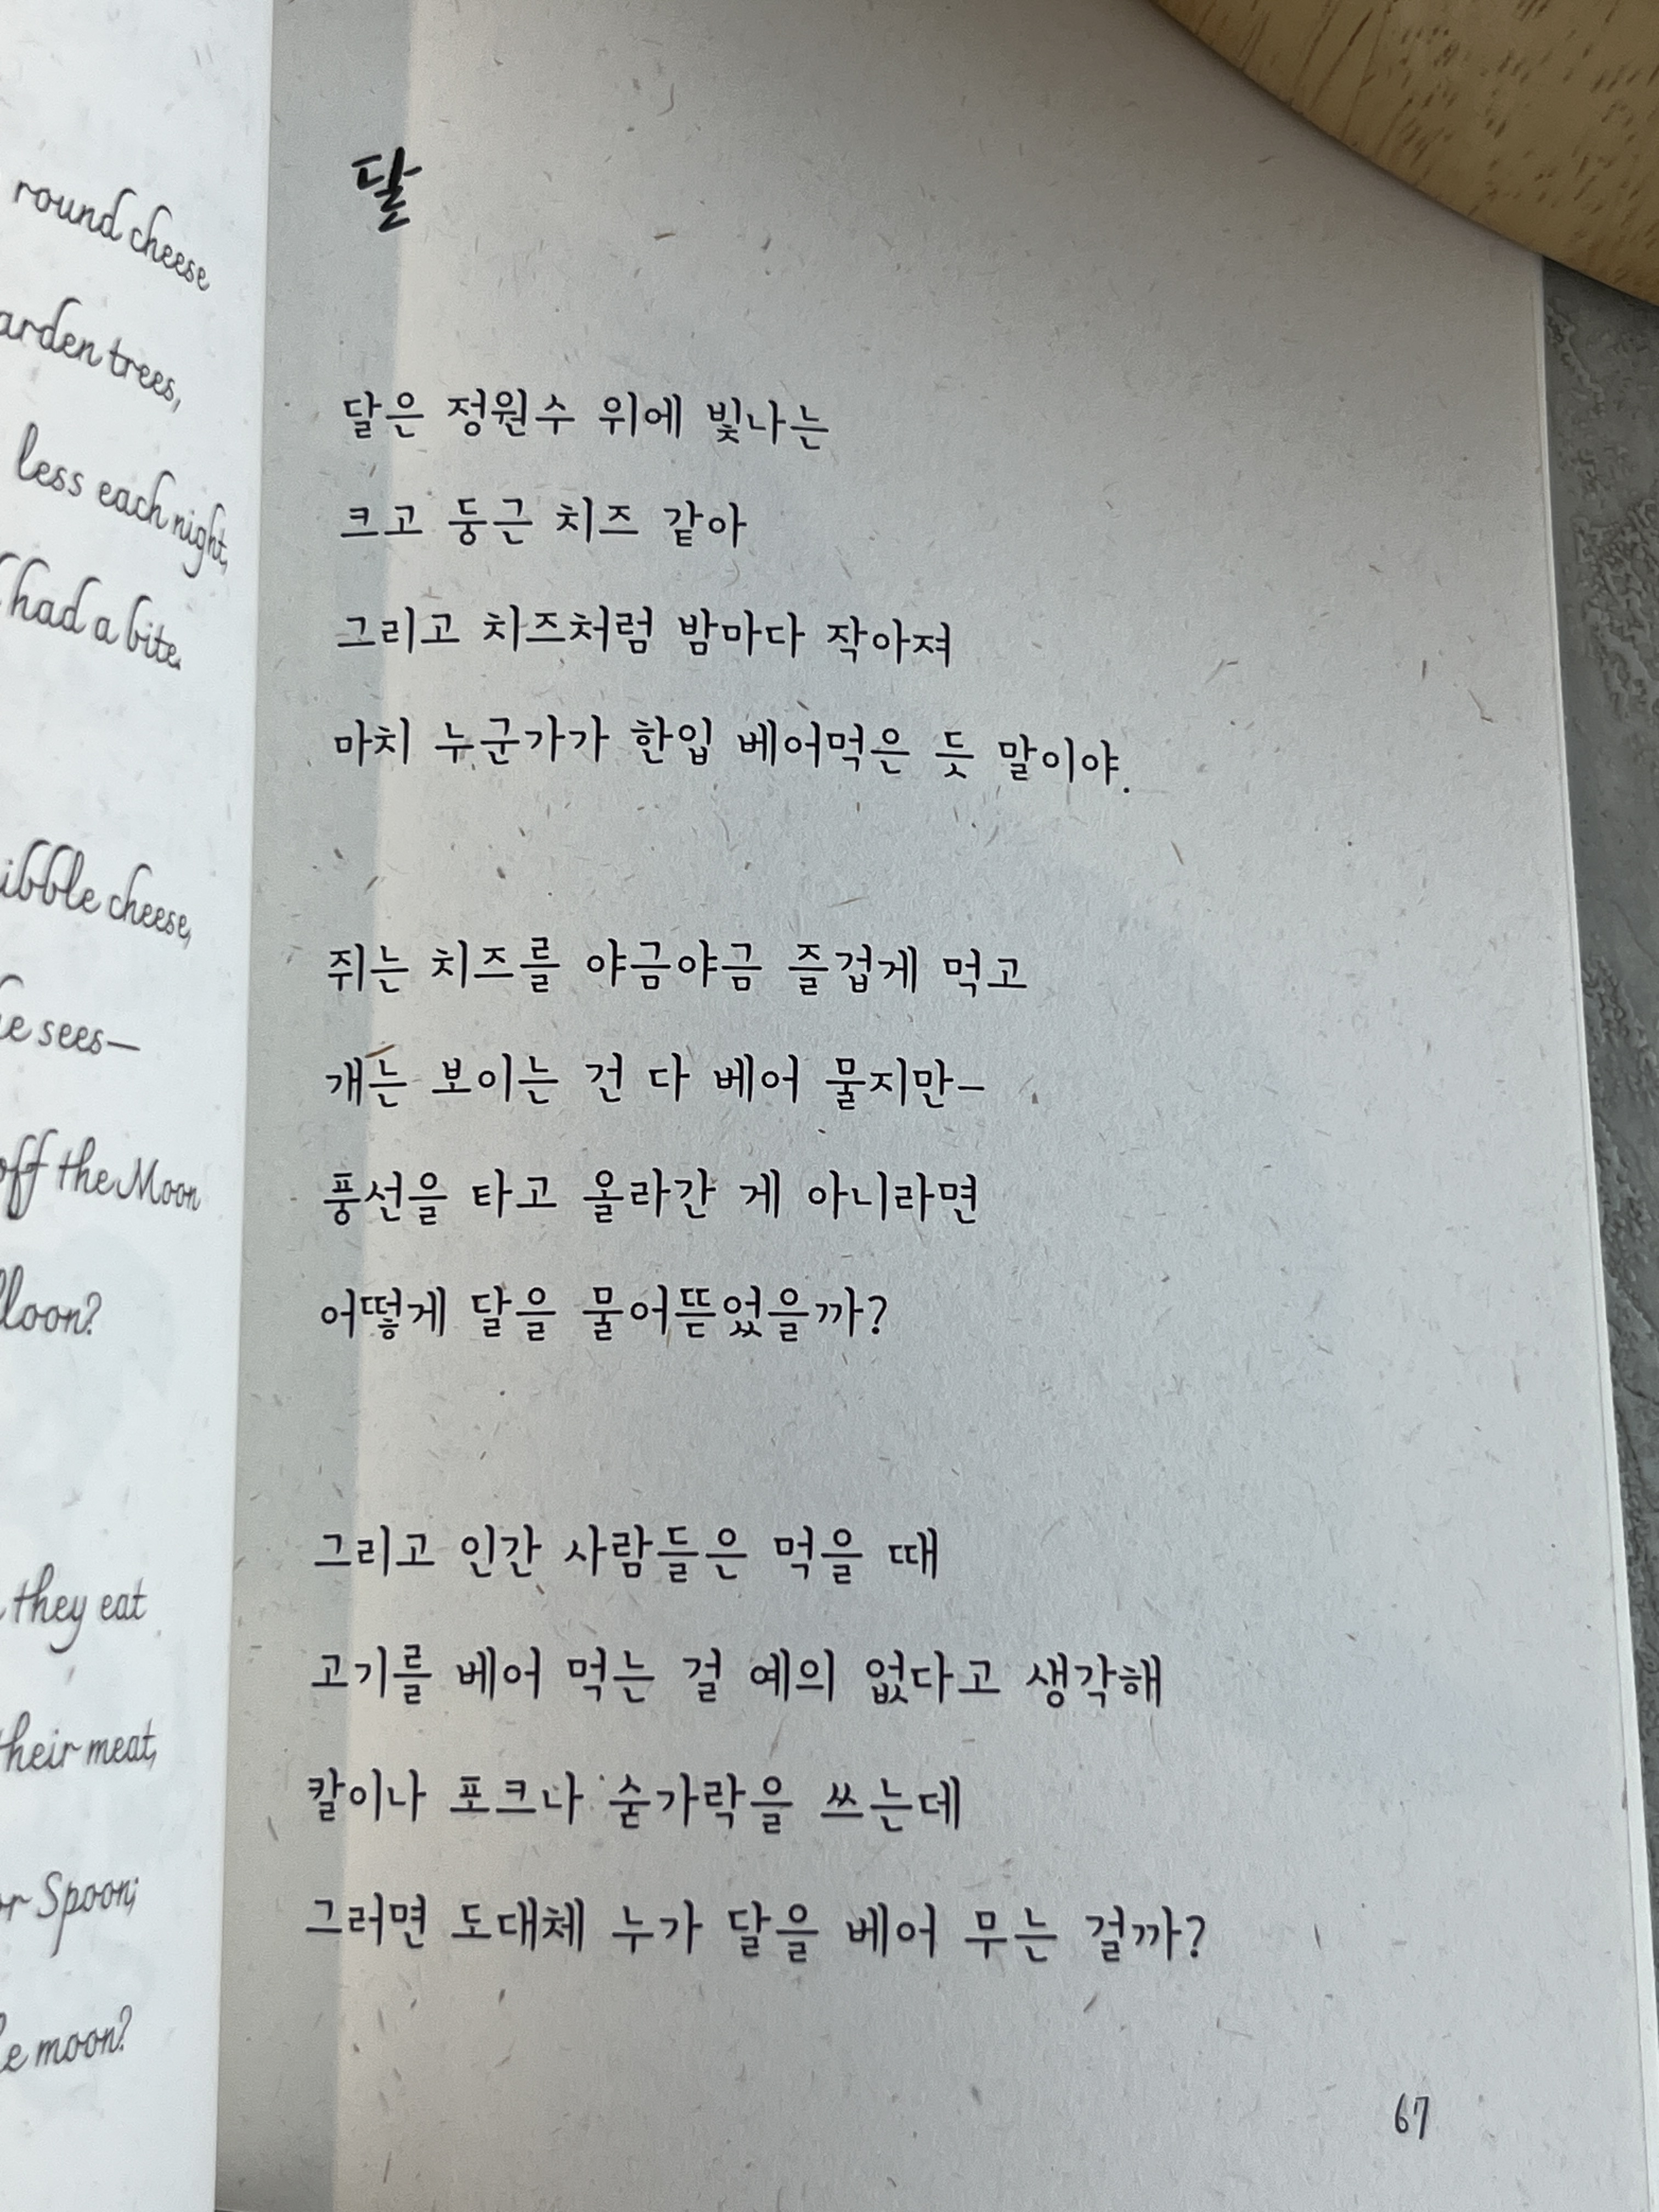 round cheese
arden trees,
less each night,
had a bite.
ibble cheese,
e sees—
off the Moon
lloon?
they eat
their meat,
or Spoon;
e moon?
달
달은 정원수 위에 빛나는
크고 둥근 치즈 같아
그리고 치즈처럼 밤마다 작아져
마치 누군가가 한입 베어먹은 듯 말이야.
쥐는 치즈를 야금야금 즐겁게 먹고
개는 보이는 건 다 베어 물지만—
풍선을 타고 올라간 게 아니라면
어떻게 달을 물어뜯었을까?
그리고 인간 사람들은 먹을 때
고기를 베어 먹는 걸 예의 없다고 생각해
칼이나 포크나 숟가락을 쓰는데
그러면 도대체 누가 달을 베어 무는 걸까?
67